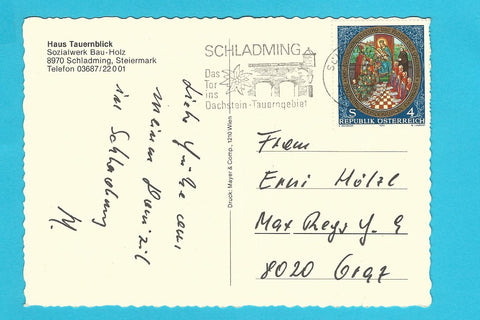 Haus Tauernblick
Sozialwerk Bau-Holz
8970 Schladming, Steiermark
Telefon 03687/22001
SCHLADMING
Das
Tor
ins
Dachstein-Tauerngebiet
S 4
REPUBLIK ÖSTERREICH
Liebe Grüße aus
meinem Domizil
in Schladming
Druck: Mayer & Comp., 1210 Wien
Frau
Erni Hölzl
Max Reger G. 9
8020 Graz